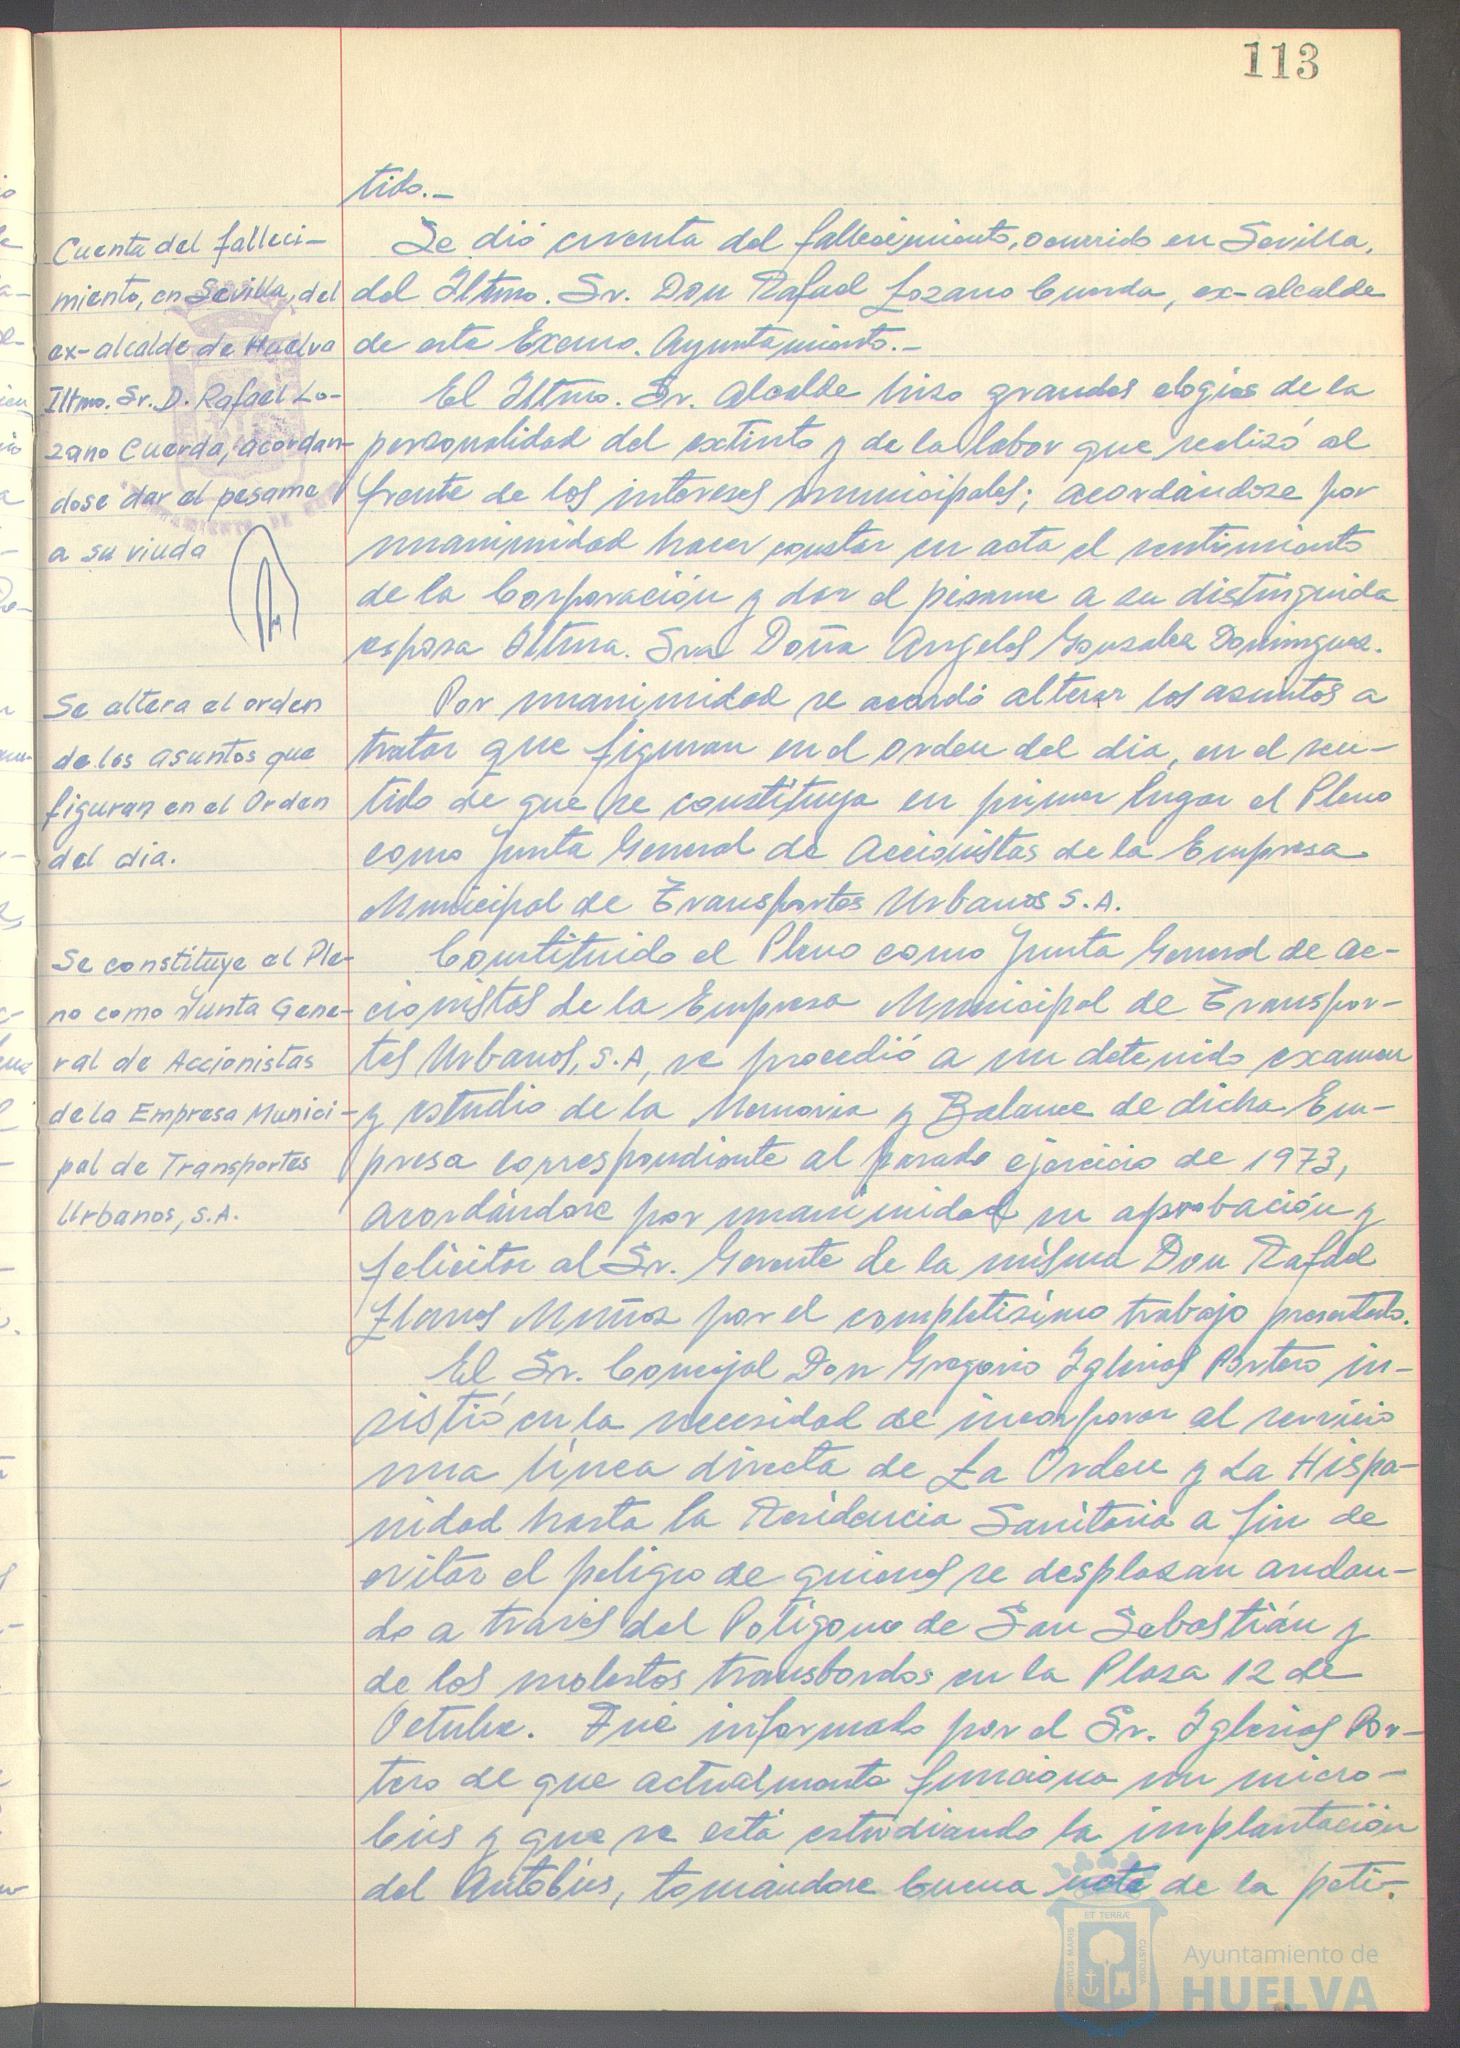 113
tido.-
Cuenta del falleci-
miento, en Sevilla, del
ex-alcalde de Huelva
Iltmo. Sr. D. Rafael Lo-
zano Cuerda, acordan-
dose dar el pesame
a su viuda
Se dió cuenta del fallecimiento, ocurrido en Sevilla,
del Iltmo. Sr. Don Rafael Lozano Cuerda, ex-alcalde
de este Excmo. Ayuntamiento.-
El Iltmo. Sr. Alcalde hizo grandes elogios de la
personalidad del extinto y de la labor que realizó al
frente de los intereses municipales; acordándose por
unanimidad hacer constar en acta el sentimiento
de la Corporación y dar el pésame a su distinguida
esposa Iltma. Sra Doña Angeles Gonzalez Dominguez.
Se altera el orden
de los asuntos que
figuran en el Orden
del dia.
Por unanimidad se acordó alterar los asuntos a
tratar que figuran en el orden del dia, en el sen-
tido de que se constituya en primer lugar el Pleno
como Junta General de Accionistas de la Empresa
Municipal de Transportes Urbanos S.A.
Se constituye el Ple-
no como Junta Gene-
ral de Accionistas
de la Empresa Munici-
pal de Transportes
Urbanos, S.A.
Constituido el Pleno como Junta General de Ac-
cionistas de la Empresa Municipal de Transpor-
tes Urbanos, S.A, se procedió a un detenido examen
y estudio de la Memoria y Balance de dicha Em-
presa correspondiente al pasado ejercicio de 1973,
acordándose por unanimidad su aprobación y
felicitar al Sr. Gerente de la misma Don Rafael
Llanes Muñoz por el completísimo trabajo presentado.
El Sr. Concejal Don Gregorio Iglesias Portero in-
sistió en la necesidad de incorporar al servicio
una línea directa de La Orden y La Hispa-
nidad hasta la Residencia Sanitaria a fin de
evitar el peligro de quienes se desplazan andan-
do a través del Polígono de San Sebastián y
de los molestos transbordos en la Plaza 12 de
Octubre. Fué informado por el Sr. Iglesias Por-
tero de que actualmente funciona un micro-
bús y que se está estudiando la implantación
del Autobús, tomándose buena nota de la peti-
PORTUS MARIS ET TERRAE CUSTODIA
Ayuntamiento de
HUELVA